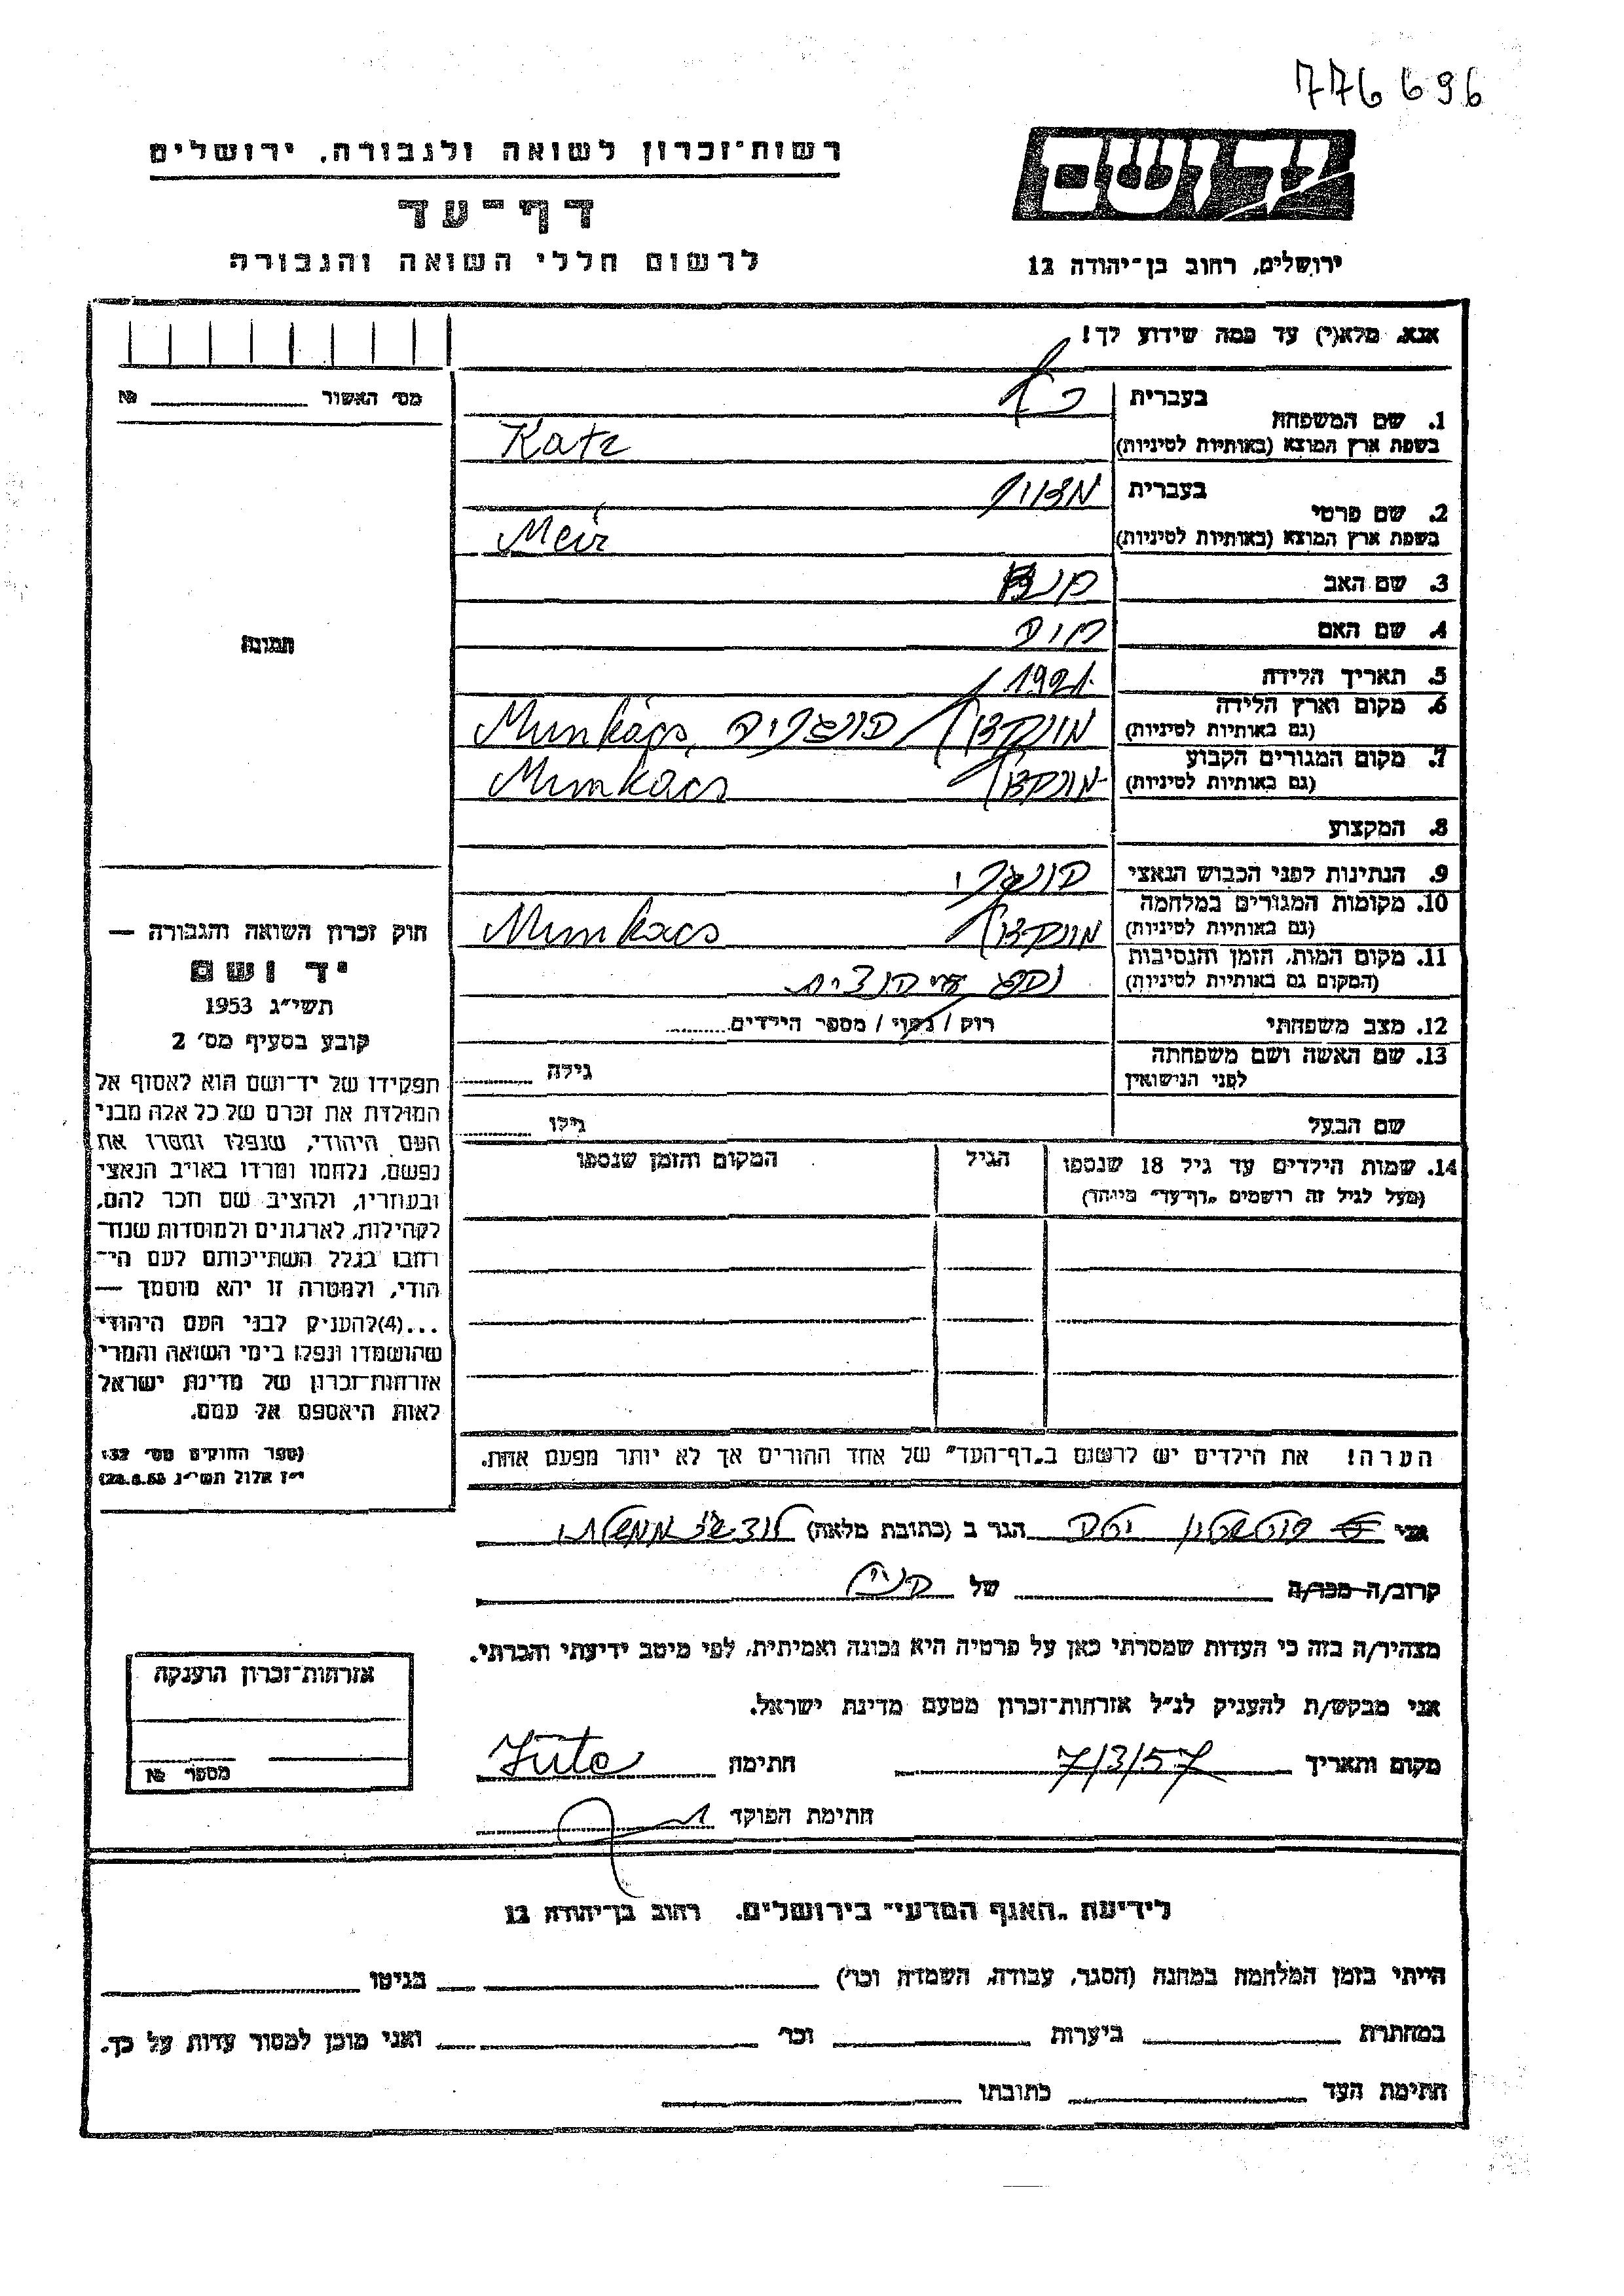 776696
רשות־זכרון לשואה ולגבורה, ירושלים
דף־עד
לרשום חללי השואה והגבורה
יד ושם
ירושלים, רחוב בן־יהודה 12
אנא, מלא(י) עד כמה שידוע לך!
מס׳ האשור № 
1. שם המשפחה בעברית כץ
בשפת ארץ המוצא (באותיות לטיניות) Katz
2. שם פרטי בעברית
בשפת ארץ המוצא (באותיות לטיניות) Meir
3. שם האב
4. שם האם
5. תאריך הלידה 1921
6. מקום וארץ הלידה
(גם באותיות לטיניות) מונקץ Munkács
7. מקום המגורים הקבוע
(גם באותיות לטיניות) Munkacs
8. המקצוע
9. הנתינות לפני הכבוש הנאצי הונגרי
10. מקומות המגורים במלחמה
(גם באותיות לטיניות) Munkacs
11. מקום המות, הזמן והנסיבות
(המקום גם באותיות לטיניות)
12. מצב משפחתי רוק / נשוי / מספר הילדים
13. שם האשה ושם משפחתה
לפני הנישואין גילה
שם הבעל גילו
14. שמות הילדים עד גיל 18 שנספו הגיל המקום והזמן שנספו
(מעל לגיל זה רושמים „דף־עד״ מיוחד)
הערה! את הילדים יש לרשום ב„דף־העד״ של אחד ההורים אך לא יותר מפעם אחת.
תמונה
חוק זכרון השואה והגבורה —
יד ושם
תשי״ג 1953
קובע בסעיף מס׳ 2
תפקידו של יד־ושם הוא לאסוף אל
המולדת את זכרם של כל אלה מבני
העם היהודי, שנפלו ומסרו את
נפשם, נלחמו ומרדו באויב הנאצי
ובעוזריו, ולהציב שם וזכר להם,
לקהילות, לארגונים ולמוסדות שנח־
רבו בגלל השתייכותם לעם הי־
הודי, ולמטרה זו יהא מוסמך —
...(4)להעניק לבני העם היהודי
שהושמדו ונפלו בימי השואה והמרי
אזרחות־זכרון של מדינת ישראל
לאות היאספם אל עמם.
(ספר החוקים מס׳ 132
י״ז אלול תשי״ג 28.8.53)
אני הגר ב (כתובת מלאה)
קרוב/ה מכר/ה של
מצהיר/ה בזה כי העדות שמסרתי כאן על פרטיה היא נכונה ואמיתית, לפי מיטב ידיעתי והכרתי.
אני מבקש/ת להעניק לנ״ל אזרחות־זכרון מטעם מדינת ישראל.
מקום ותאריך 7/3/57 חתימה
חתימת הפוקד
אזרחות־זכרון הוענקה
מספר №
לידיעת „האגף המדעי״ בירושלים, רחוב בן־יהודה 12
הייתי בזמן המלחמה במחנה (הסגר, עבודה, השמדה וכו׳) בגיטו
במחתרת ביערות וכו׳ ואני מוכן למסור עדות על כך.
חתימת העד כתובתו